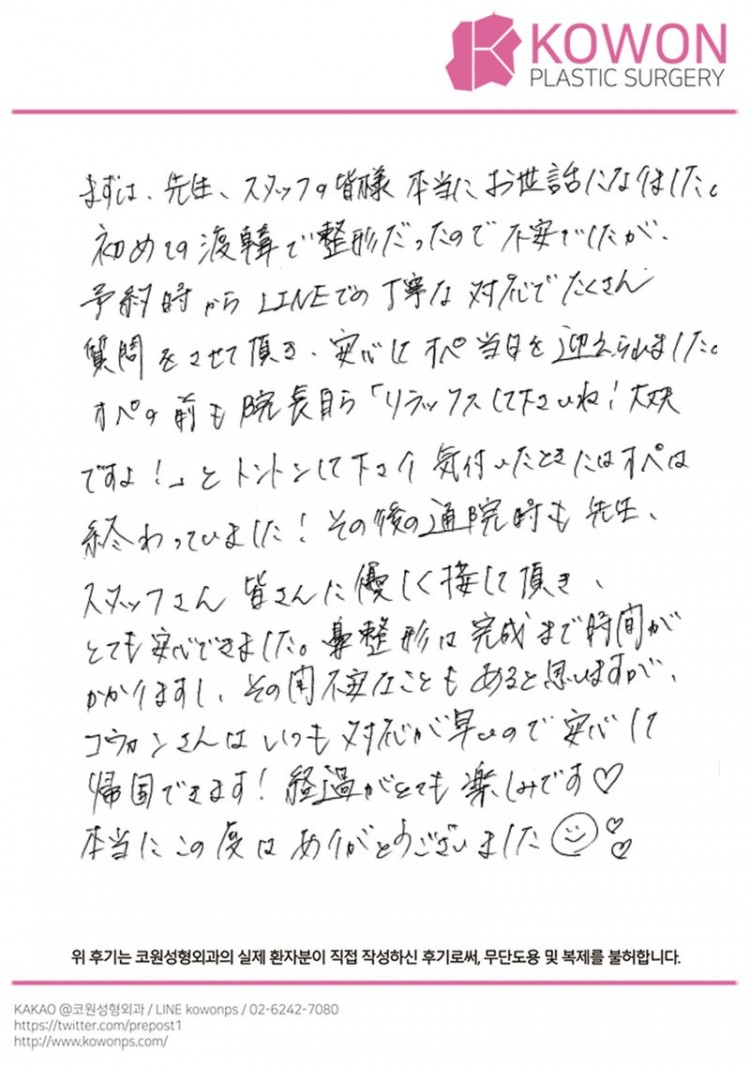 KOWON
PLASTIC SURGERY
まずは、先生、スタッフの皆様 本当に お世話になりました。
初めての渡韓で整形だったので 不安でしたが、
予約時から LINEでの丁寧な 対応で たくさん
質問をさせて頂き、安心して オペ当日を 迎えられました。
オペの前も 院長自ら「リラックスして下さいね！大丈夫
ですよ！」と トントンして下さり 気付いたときにはオペは
終わっていました！その後の通院時も 先生、
スタッフさん 皆さんに 優しく接して頂き、
とても安心できました。鼻整形は 完成まで時間が
かかりますし、その間 不安なことも あると思いますが、
コウォンさんは いつも 対応が早いので 安心して
帰国できます！経過がとても 楽しみです♡
本当に この度は ありがとうございました
위 후기는 코원성형외과의 실제 환자분이 직접 작성하신 후기로써, 무단도용 및 복제를 불허합니다.
KAKAO @코원성형외과 / LINE kowonps / 02-6242-7080
https://twitter.com/prepost1
http://www.kowonps.com/